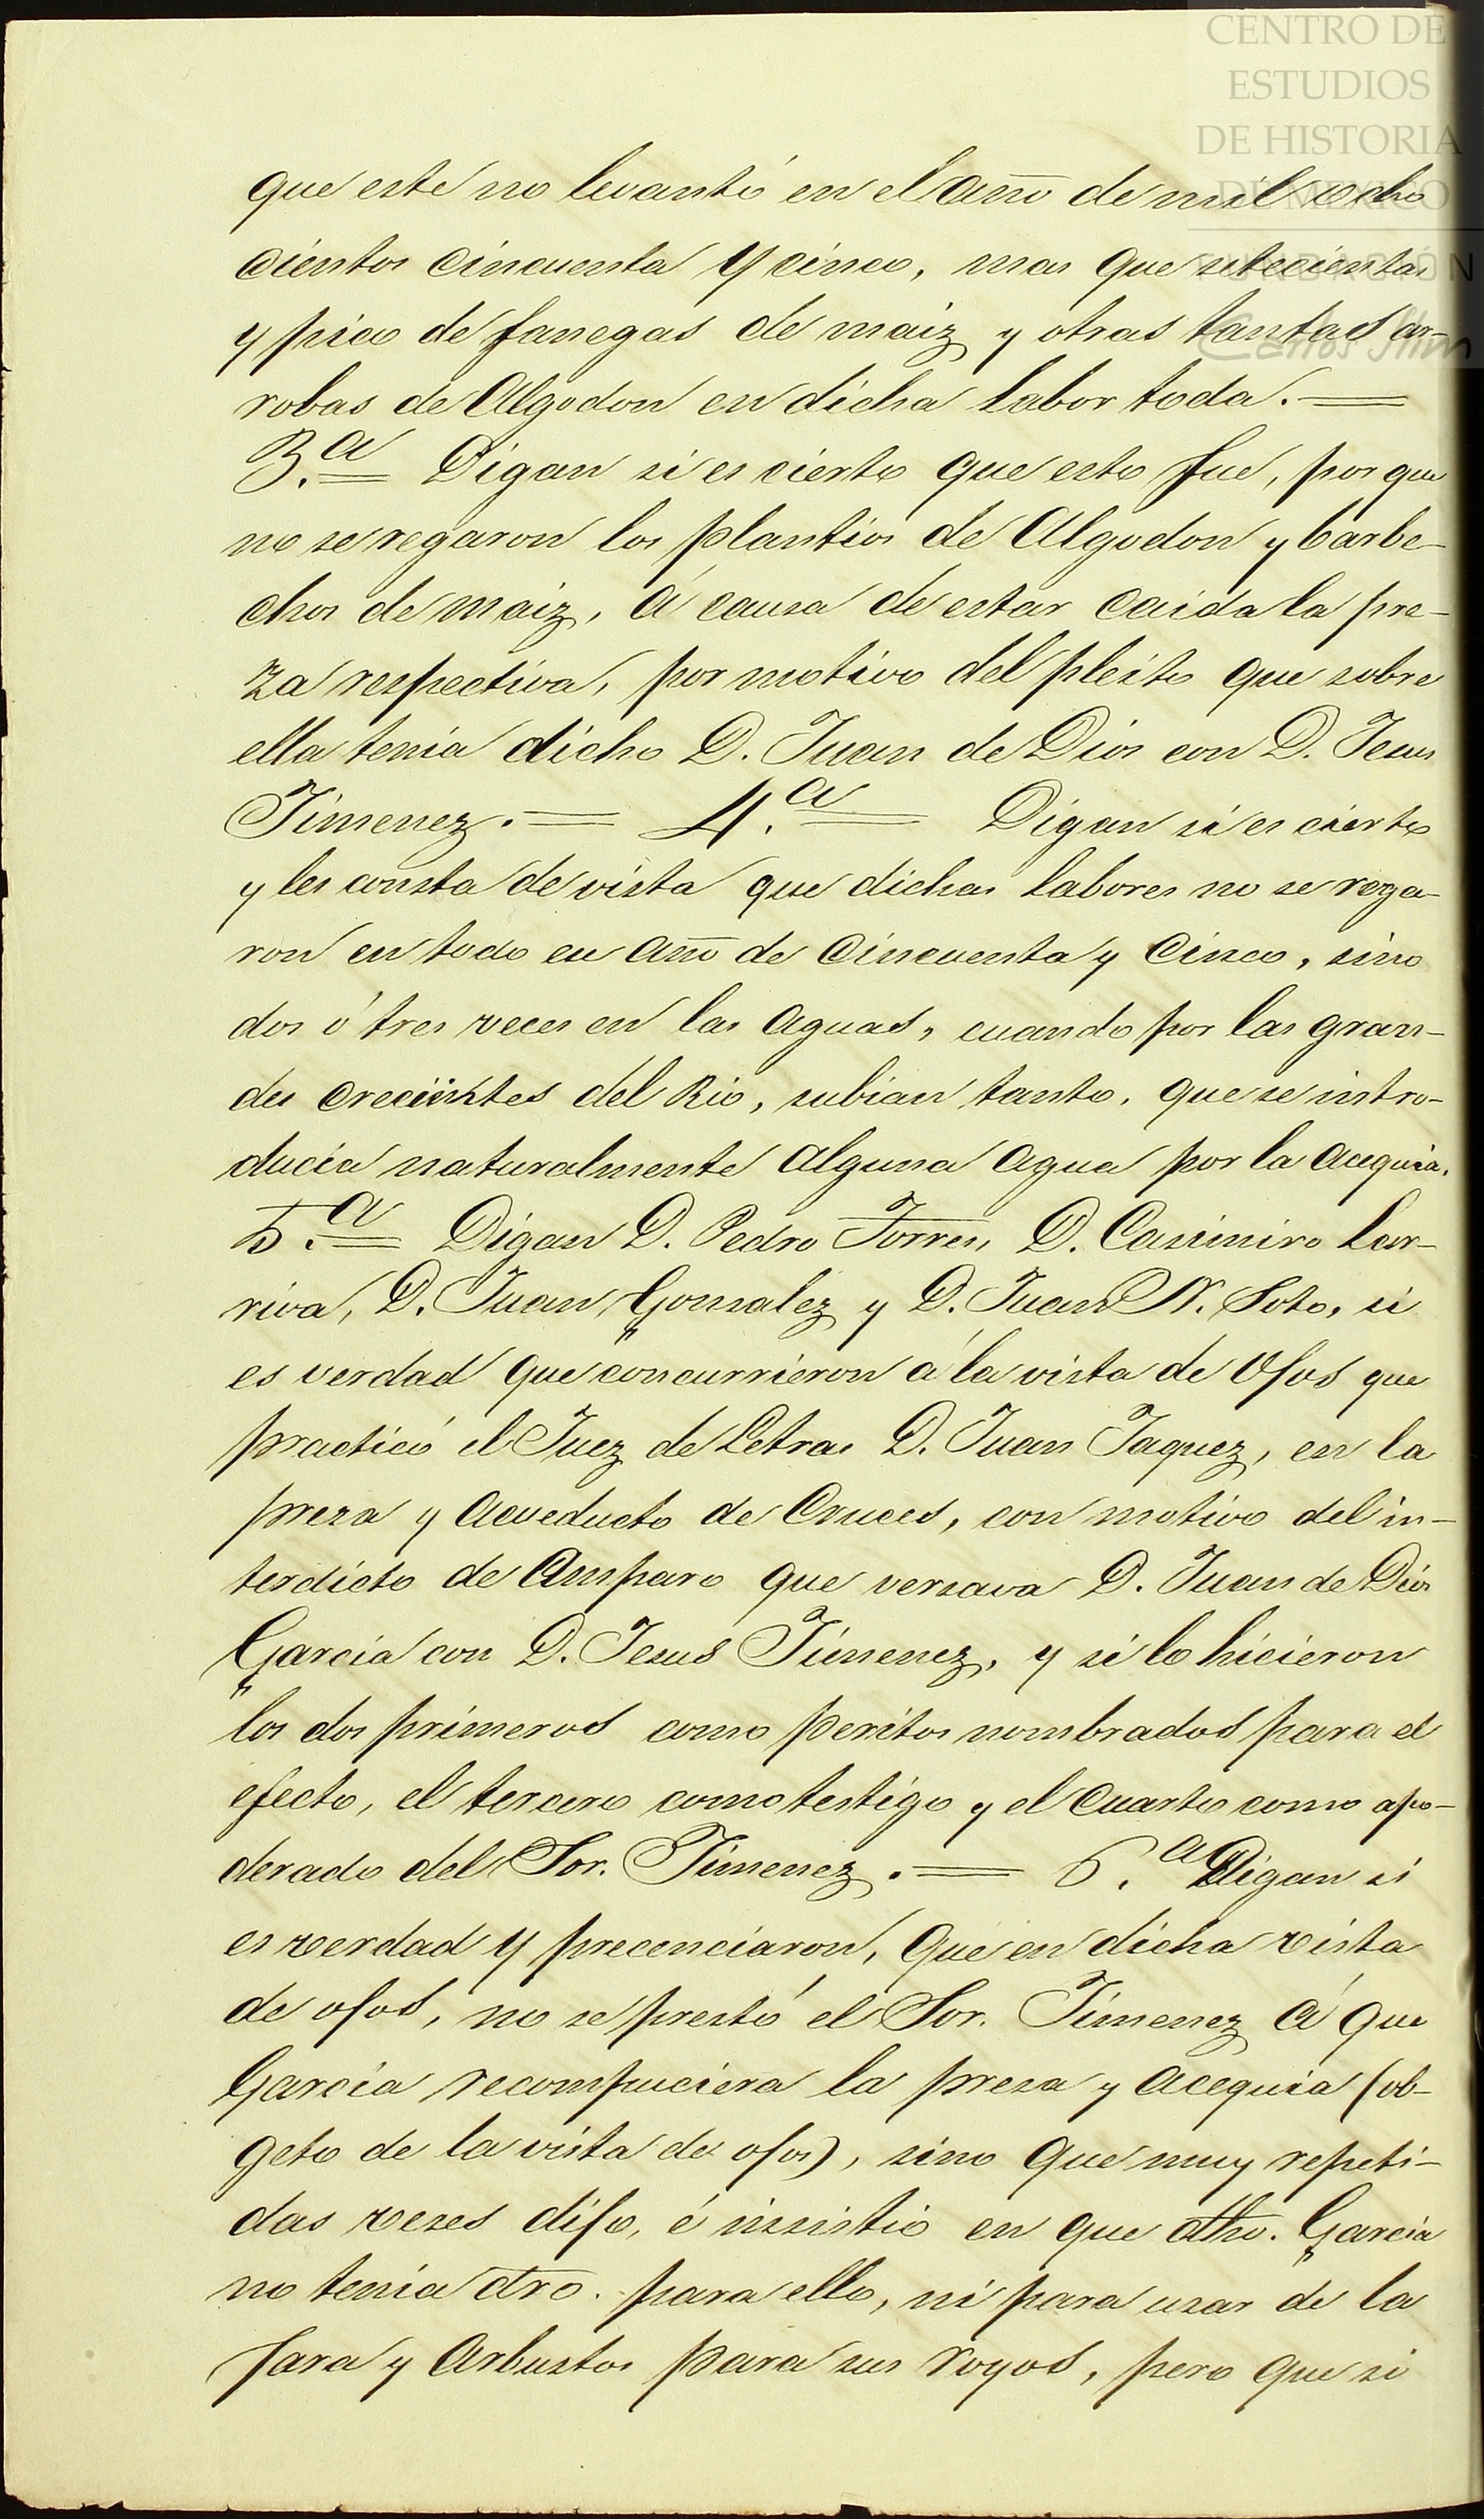 CENTRO DE
ESTUDIOS
DE HISTORIA
DE MEXICO
FUNDACIÓN
Carlos Slim
que este no levantó en el año de mil ocho
cientos cincuenta y cinco, mas que setecientas
y pico de fanegas de maiz y otras tantas ar-
robas de Algodon en dicha labor toda. =
3.a Digan si es cierto que esto fue, por que
no se regaron los plantios de Algodon y barbe-
chos de maiz, á causa de estar caida la pre-
za respectiva, por motivo del pleito que sobre
ella tenia dicho D. Juan de Dios con D. Jesus
Jimenez. = 4.a = Digan si es cierto
y les consta de vista que dichas labores no se rega-
ron en todo eu año de cincuenta y cinco, sino
dos ó tres veces en las aguas, cuando por las gran-
des crecientes del Rio, subian tanto, que se intro-
ducia naturalmente alguna agua por la acequia.
5.a Digan D. Pedro Torres, D. Casimiro Lar-
riva, D. Juan Gonzalez y D. Juan N. Soto, si
es verdad que concurrieron á la vista de Ojos que
practicó el Juez de Letras D. Juan Jaquez, en la
preza y acueducto de Cruces, con motivo del in-
terdicto de Amparo que versava D. Juan de Dios
Garcia con D. Jesus Jimenez, y si lo hicieron
los dos primeros como peritos nombrados para el
efecto, el tercero como testigo y el cuarto como apo-
derado del Sor. Jimenez. = 6.a Digan si
es verdad y precenciaron, que en dicha vista
de ojos, no se prestó el Sor. Jimenez á que
Garcia recompuciera la preza y acequia (ob-
geto de la vista de ojos), sino que muy repeti-
das vezes dijo, é insistio en que dho. Garcia
no tenia dro. para ello, ni para uzar de la
Jara y Arbustos para sus royos, pero que si